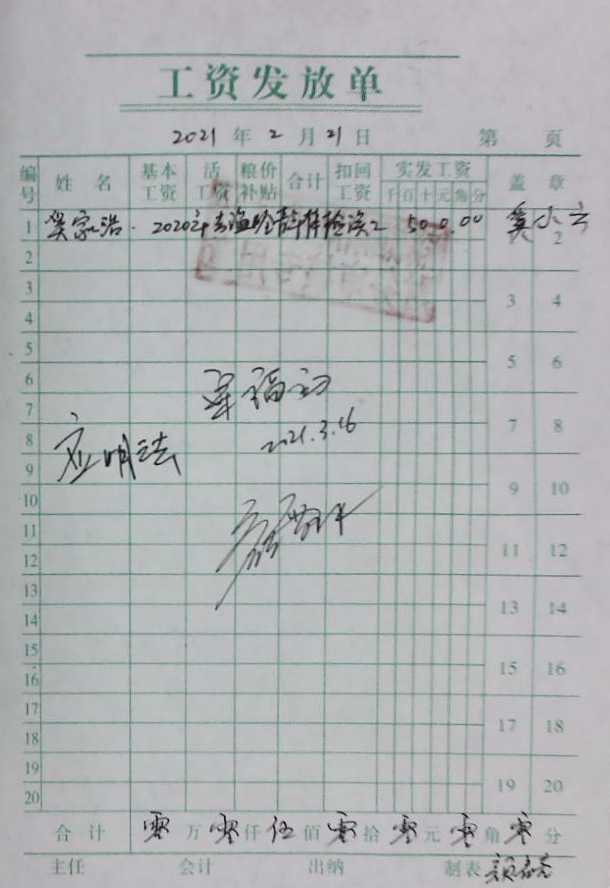 工资发放单
2021 年 2 月 21 日 第 页
编号 姓名 基本工资 活工资 粮价补贴 合计 扣回工资 实发工资 千百十元角分 盖章
1 吴家浩 2020年 500.00 吴小 2
2
3 3 4
4
5 5 6
6
7 7 8
2021.3.16
8
应明法
9 9 10
10
11 11 12
12
13 13 14
14
15 15 16
16
17 17 18
18
19 19 20
20
合计 零万零仟伍佰零拾零元零角零分
主任 会计 出纳 制表